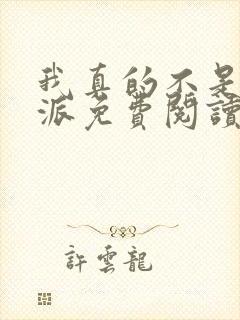 我真的不是
派免費閱讀
許雲龍